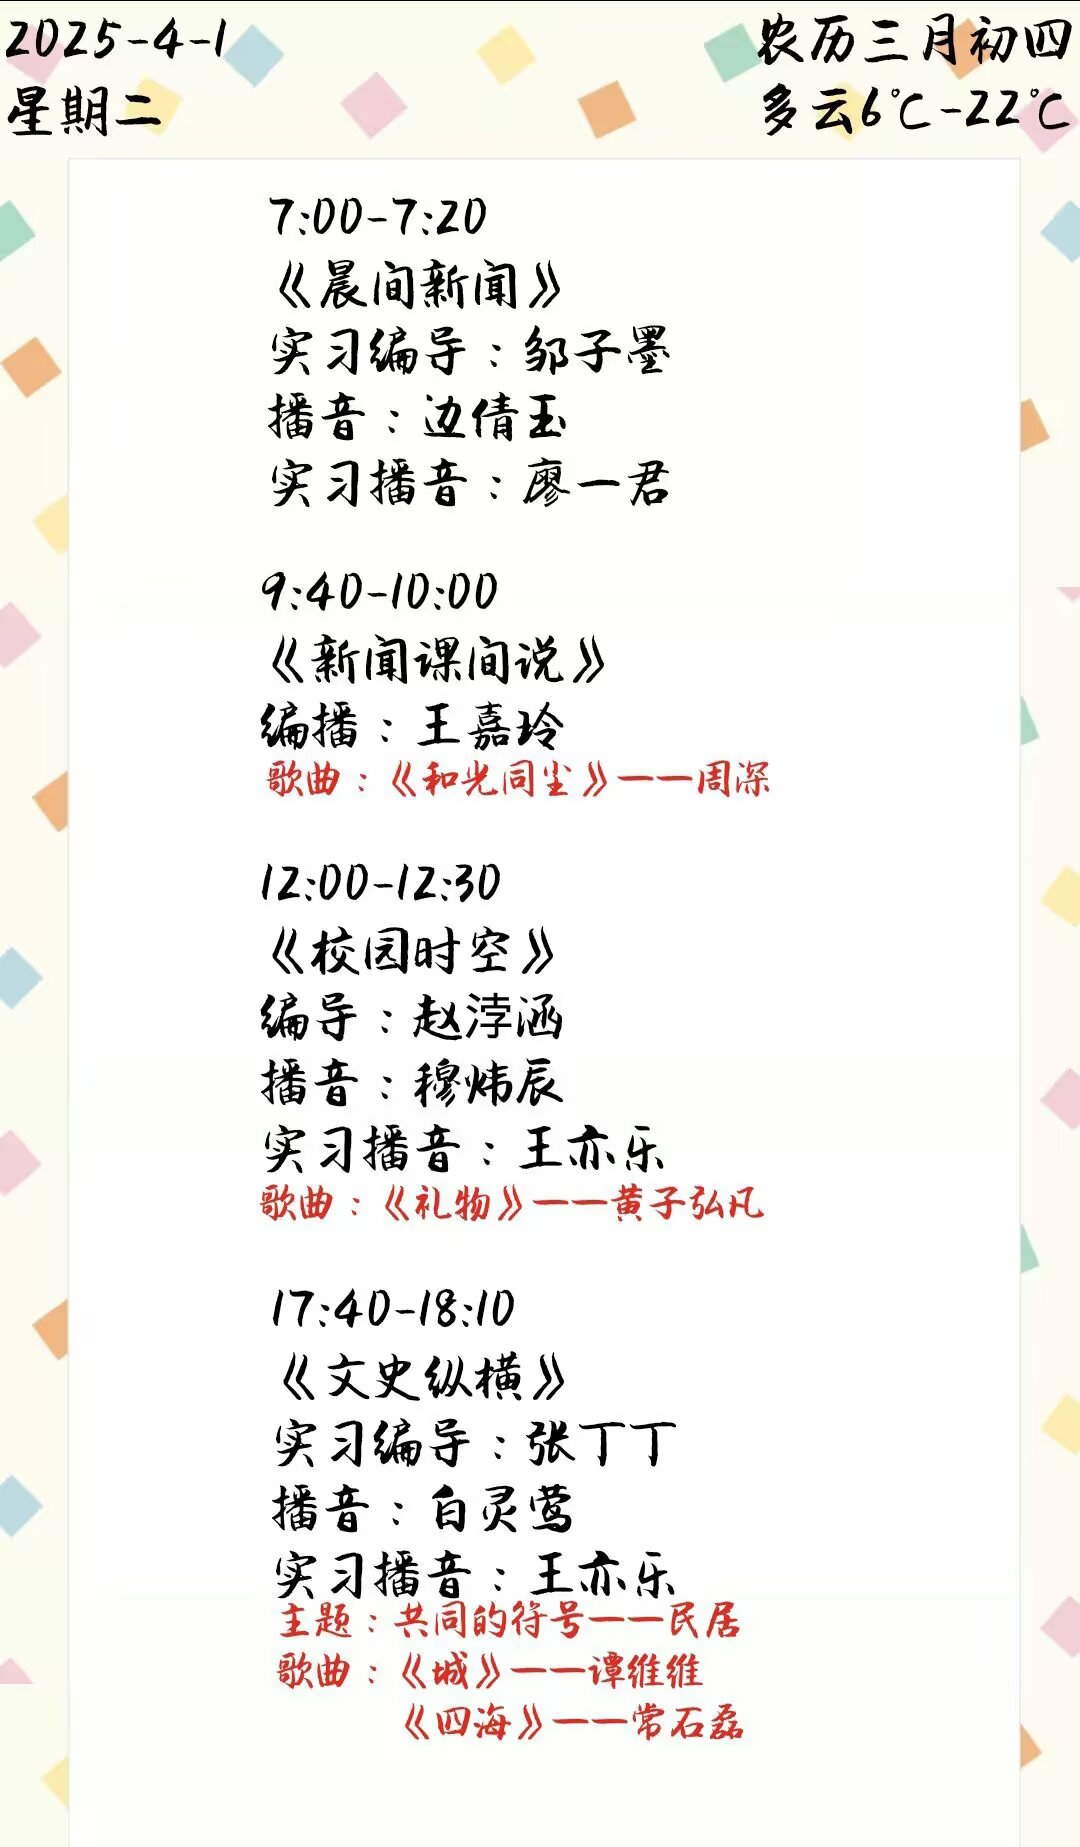 2025-4-1
农历三月初四
星期二
多云6℃-22℃
7:00-7:20
《晨间新闻》
实习编导：邹子墨
播音：边倩玉
实习播音：廖一君
9:40-10:00
《新闻课间说》
编播：王嘉玲
歌曲：《和光同尘》——周深
12:00-12:30
《校园时空》
编导：赵浡涵
播音：穆炜辰
实习播音：王亦乐
歌曲：《礼物》——黄子弘凡
17:40-18:10
《文史纵横》
实习编导：张丁丁
播音：白灵莺
实习播音：王亦乐
主题：共同的符号——民居
歌曲：《城》——谭维维
《四海》——常石磊